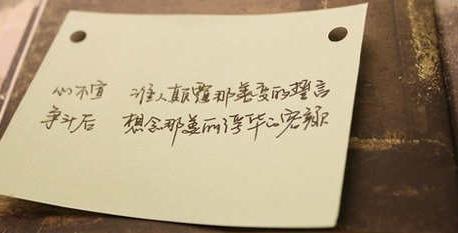 心不宣 谁人颠覆那善变的誓言
争斗后 想念那美丽浮华の容颜